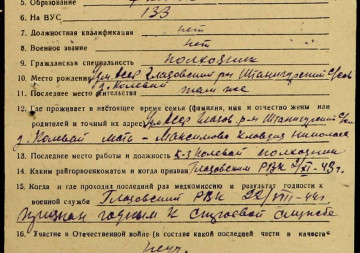 5. Образование
6. На ВУС 133
7. Должностная квалификация нет
8. Военное звание нет
9. Гражданская специальность колхозник
10. Место рождения Удм. АССР Глазовский р-н Штанигуртский с/сов
д. Полевай
11. Последнее место жительства там же
12. Где проживает в настоящее время семья (фамилия, имя и отчество жены или
родителей и точный их адрес) Глазов. р-н Штанигуртский с/сов
д. мать – Максимова Клавдия
13. Последнее место работы и должность к-з колхозник
14. Каким райгорвоенкоматом и когда призван Глазовским РВК XI-43 г.
15. Когда и где проходил последний раз медкомиссию и результат годности к
военной службе Глазовский РВК 22/VIII-44 г.
признан годным к строевой службе
16. Участие в Отечественной войне (в составе какой последней части и в качестве